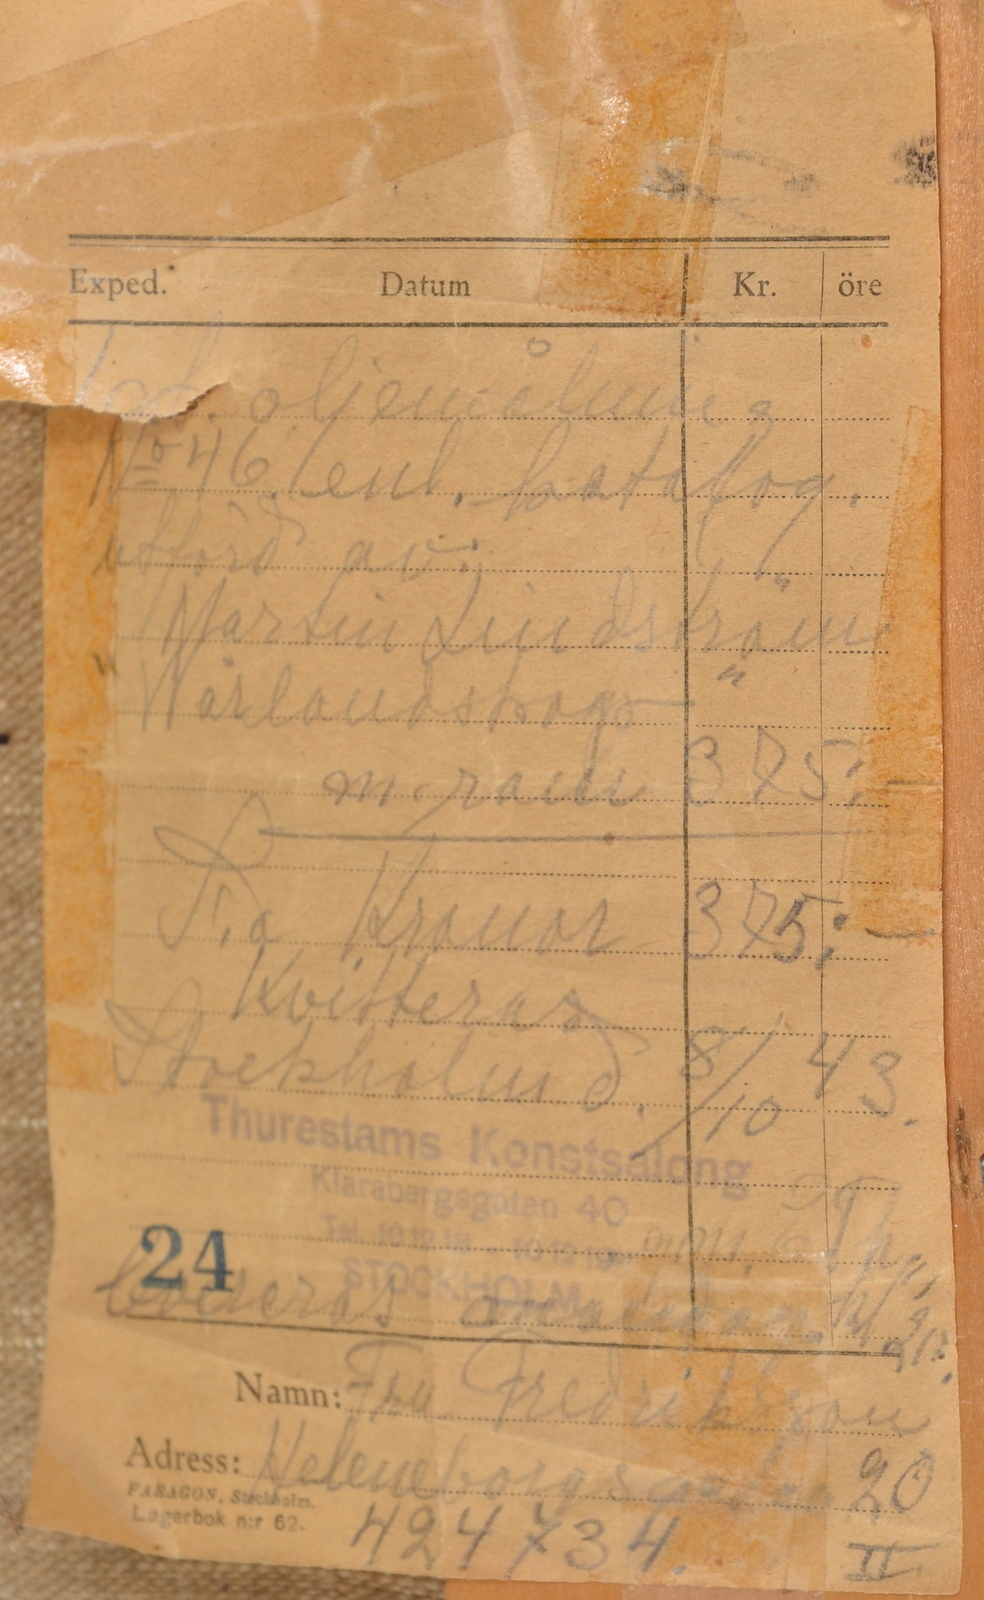 Exped. Datum Kr. öre
oljemålning
No 46. enl. katalog.
utförd av:
Martin Lindström
Wärlandsskog
m. ram 375:-
S:a Kronor 375:-
Kvitteras
Stockholm d. 8/10 43.
Thurestams Konstsalong
Klarabergsgatan 40
Tel. 10 12 18 10 12 19
STOCKHOLM
24
Levereras
Namn: Fru Fredriksson
Adress: Heleneborgsgatan 20
PARAGON, Stockholm.
Lagerbok n:r 62.
424734. II